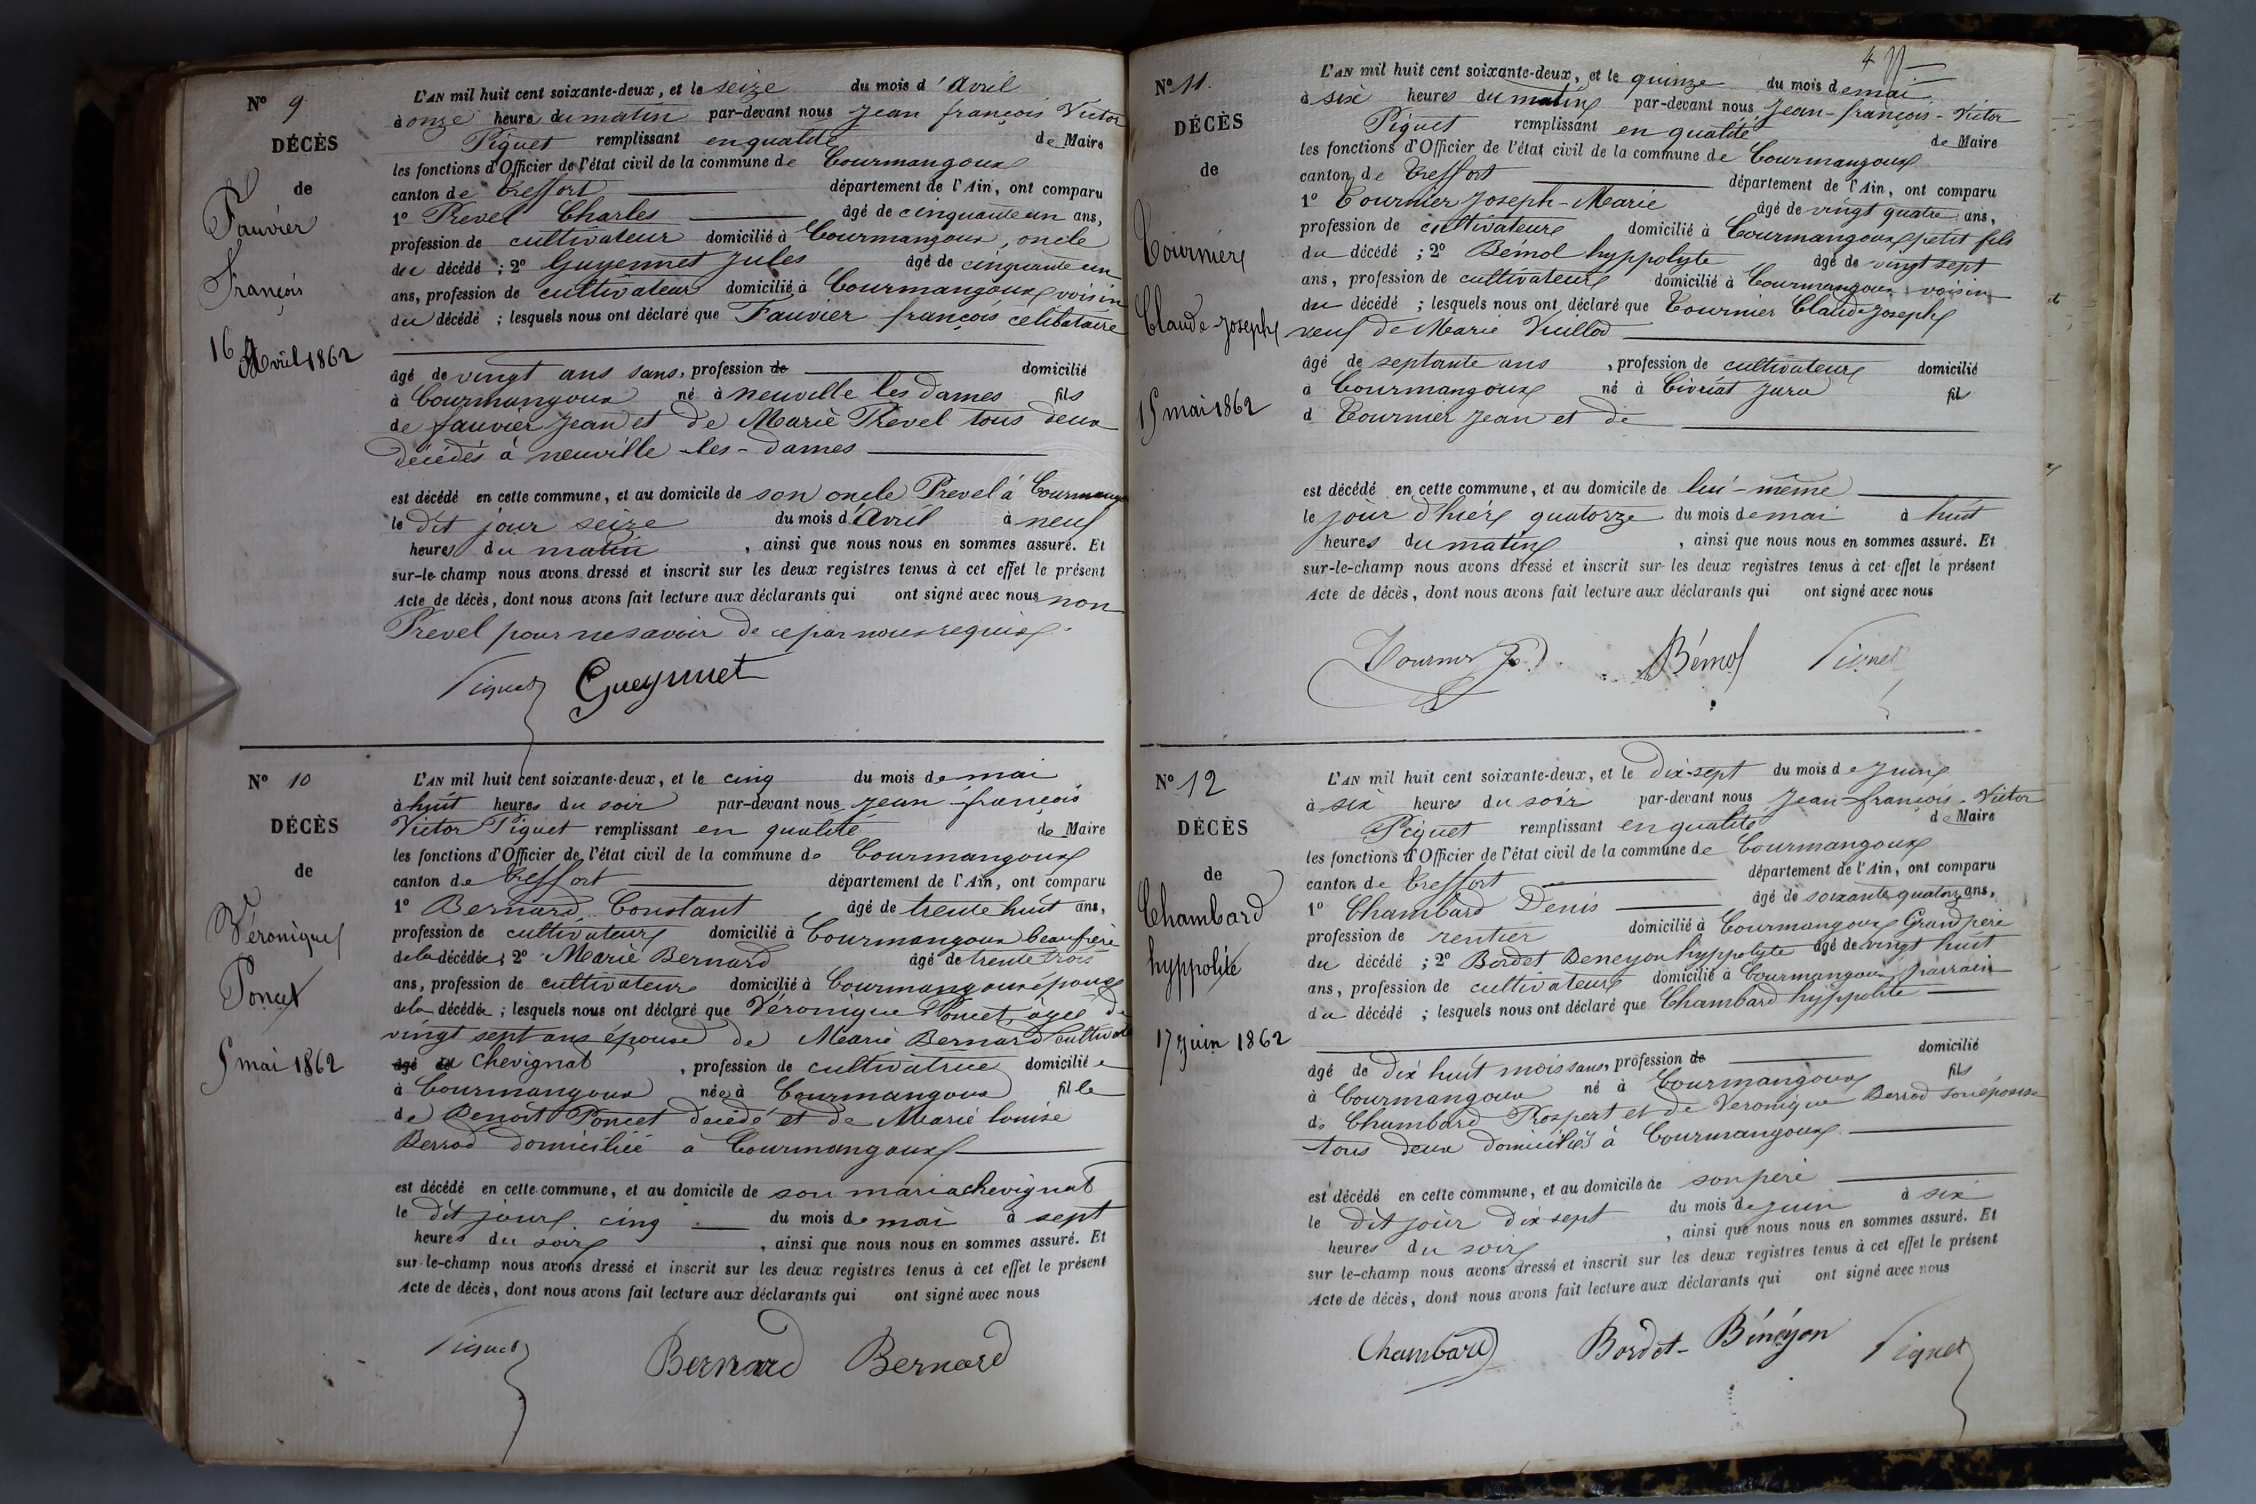 N° 9
DÉCÈS
de
Fauvier
François
16 Avril 1862
L'AN mil huit cent soixante-deux, et le seize du mois d'Avril
à onze heures du matin par-devant nous Jean françois Victor
Piquet remplissant en qualité de Maire
les fonctions d'Officier de l'état civil de la commune de Courmangoux
canton de Treffort département de l'Ain, ont comparu
1° Prevel Charles âgé de cinquante un ans,
profession de cultivateur domicilié à Courmangoux, oncle
du décédé ; 2° Guyennet Jules âgé de cinquante un
ans, profession de cultivateur domicilié à Courmangoux voisin
du décédé ; lesquels nous ont déclaré que Fauvier françois celibataire
âgé de vingt ans sans, profession de domicilié
à Courmangoux né à neuville les dames fils
de fauvier Jean et de Marie Prevel tous deux
décédés à neuville-les-dames
est décédé en cette commune, et au domicile de son oncle Prevel à Courmangoux
le dit jour seize du mois d'Avril à neuf
heures du matin, ainsi que nous nous en sommes assuré. Et
sur-le-champ nous avons dressé et inscrit sur les deux registres tenus à cet effet le présent
Acte de décès, dont nous avons fait lecture aux déclarants qui ont signé avec nous non
Prevel pour ne savoir de ce par nous requis.
Piquet Gueynnet
N° 10
DÉCÈS
de
Véronique
Poncet
5 mai 1862
L'AN mil huit cent soixante-deux, et le cinq du mois de mai
à huit heures du soir par-devant nous Jean-françois
Victor Piquet remplissant en qualité de Maire
les fonctions d'Officier de l'état civil de la commune de Courmangoux
canton de Treffort département de l'Ain, ont comparu
1° Bernard Constant âgé de trente huit ans,
profession de cultivateur domicilié à Courmangoux beaufrère
de la décédée ; 2° Marie Bernard âgé de trente trois
ans, profession de cultivateur domicilié à Courmangoux époux
de la décédée ; lesquels nous ont déclaré que Véronique Poncet, âgée de
vingt sept ans épouse de Marie Bernard cultivat
âgé de Chevignat, profession de cultivatrice domiciliée
à Courmangoux née à Courmangoux fille
de Benoit Poncet decédé et de Marie louise
Berrod domiciliée à Courmangoux
est décédé en cette commune, et au domicile de son mari a chevignat
le dit jour cinq du mois de mai à sept
heures du soir, ainsi que nous nous en sommes assuré. Et
sur-le-champ nous avons dressé et inscrit sur les deux registres tenus à cet effet le présent
Acte de décès, dont nous avons fait lecture aux déclarants qui ont signé avec nous
Piquet Bernard Bernard
N° 11.
DÉCÈS
de
Tournier
Claude Joseph
15 mai 1862
L'AN mil huit cent soixante-deux, et le quinze du mois de mai
à six heures du matin par-devant nous Jean-françois-Victor
Piquet remplissant en qualité de Maire
les fonctions d'Officier de l'état civil de la commune de Courmangoux
canton de Treffort département de l'Ain, ont comparu
1° Tournier Joseph-Marie âgé de vingt quatre ans,
profession de cultivateur domicilié à Courmangoux petit fils
du décédé ; 2° Bémol hyppolyte âgé de vingt sept
ans, profession de cultivateur domicilié à Courmangoux voisin
du décédé ; lesquels nous ont déclaré que Tournier Claude Joseph
veuf de Marie Vuillod
âgé de septante ans, profession de cultivateur domicilié
à Courmangoux né à Civriat Jura fils
d Tournier Jean et de
est décédé en cette commune, et au domicile de lui-même
le jour d'hier quatorze du mois de mai à huit
heures du matin, ainsi que nous nous en sommes assuré. Et
sur-le-champ nous avons dressé et inscrit sur les deux registres tenus à cet effet le présent
Acte de décès, dont nous avons fait lecture aux déclarants qui ont signé avec nous
Tournier Bémol Piquet
N° 12
DÉCÈS
de
Chambard
hyppolite
17 Juin 1862
L'AN mil huit cent soixante-deux, et le dix-sept du mois de Juin
à six heures du soir par-devant nous Jean-françois-Victor
Piquet remplissant en qualité de Maire
les fonctions d'Officier de l'état civil de la commune de Courmangoux
canton de Treffort département de l'Ain, ont comparu
1° Chambard Denis âgé de soixante quatorze ans,
profession de rentier domicilié à Courmangoux Grand père
du décédé ; 2° Bordet Beneyon hyppolyte âgé de vingt huit
ans, profession de cultivateur domicilié à Courmangoux parrain
du décédé ; lesquels nous ont déclaré que Chambard hyppolite
âgé de dix huit mois sans, profession de domicilié
à Courmangoux né à Courmangoux fils
de Chambard Prospert et de Veronique Berrod son épouse
tous deux domiciliés à Courmangoux.
est décédé en cette commune, et au domicile de son père
le dit jour dix sept du mois de juin à six
heures du soir, ainsi que nous nous en sommes assuré. Et
sur le-champ nous avons dressé et inscrit sur les deux registres tenus à cet effet le présent
Acte de décès, dont nous avons fait lecture aux déclarants qui ont signé avec nous
Chambard Bordet-Bénéyon Piquet